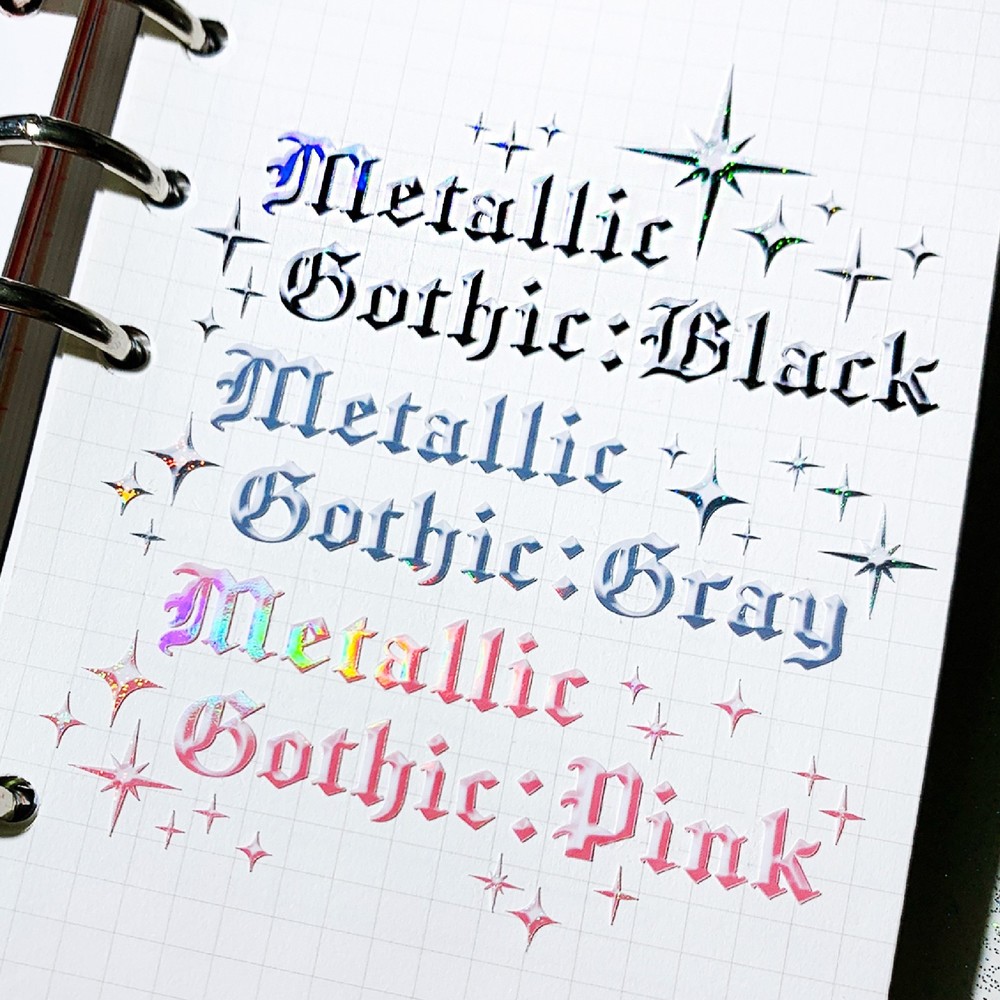 Metallic
Gothic:Black
Metallic
Gothic:Gray
Metallic
Gothic:Pink